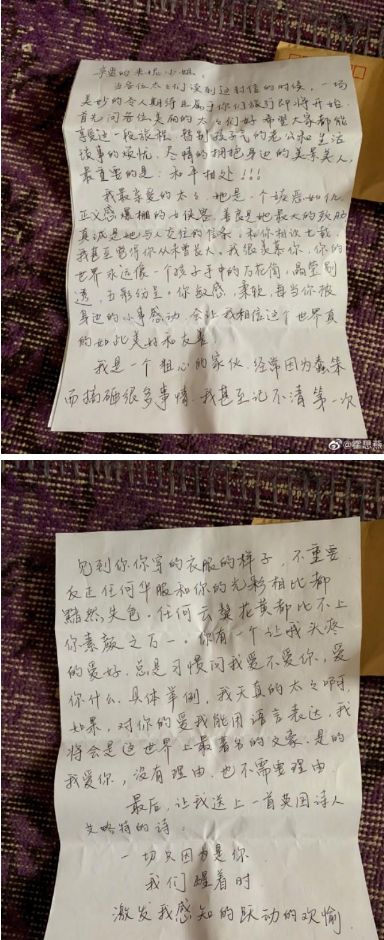 尊重的朱依小姐：
当各位太太们读到这封信的时候，一场
美妙的令人期待且属于你们旅行即将开始
首先问各位美丽的太太们好 希望大家都能
享受这一段旅程 告别孩子气的老公和生活
琐事的烦忧 尽情的拥抱身边的美景美人，
最重要的是：和平相处！！！
我最亲爱的太太，她是一个嫉恶如仇
正义感爆棚的女侠客 善良是她最大的软肋
真诚是她与人交往的信条，和你相识七载
我甚至觉得你从未曾长大，我很羡慕你，你的
世界永远像一个孩子手中的万花筒，晶莹剔
透，五彩纷呈，你敏感，柔软，每当你被
身边的小事感动，会让我相信这个世界真
的如此美好和友善！
我是一个粗心的家伙，经常因为蠢笨
而搞砸很多事情，我甚至记不清第一次
@霍思燕
见到你你穿的衣服的样子，不重要
反正任何华服和你的光彩相比都
黯然失色，任何云鬓花黄都比不上
你素颜之万一，你有一个让我头疼
的爱好，总是习惯问我爱不爱你，爱
你什么，具体举例，我天真的太太啊
如果，对你的爱我能用语言表达，我
将会是这世界上最著名的文豪，是的
我爱你，没有理由，也不需要理由
最后，让我送上一首英国诗人
艾略特的诗，
一切只因为是你
我们醒着时
激发我感知的跃动的欢愉